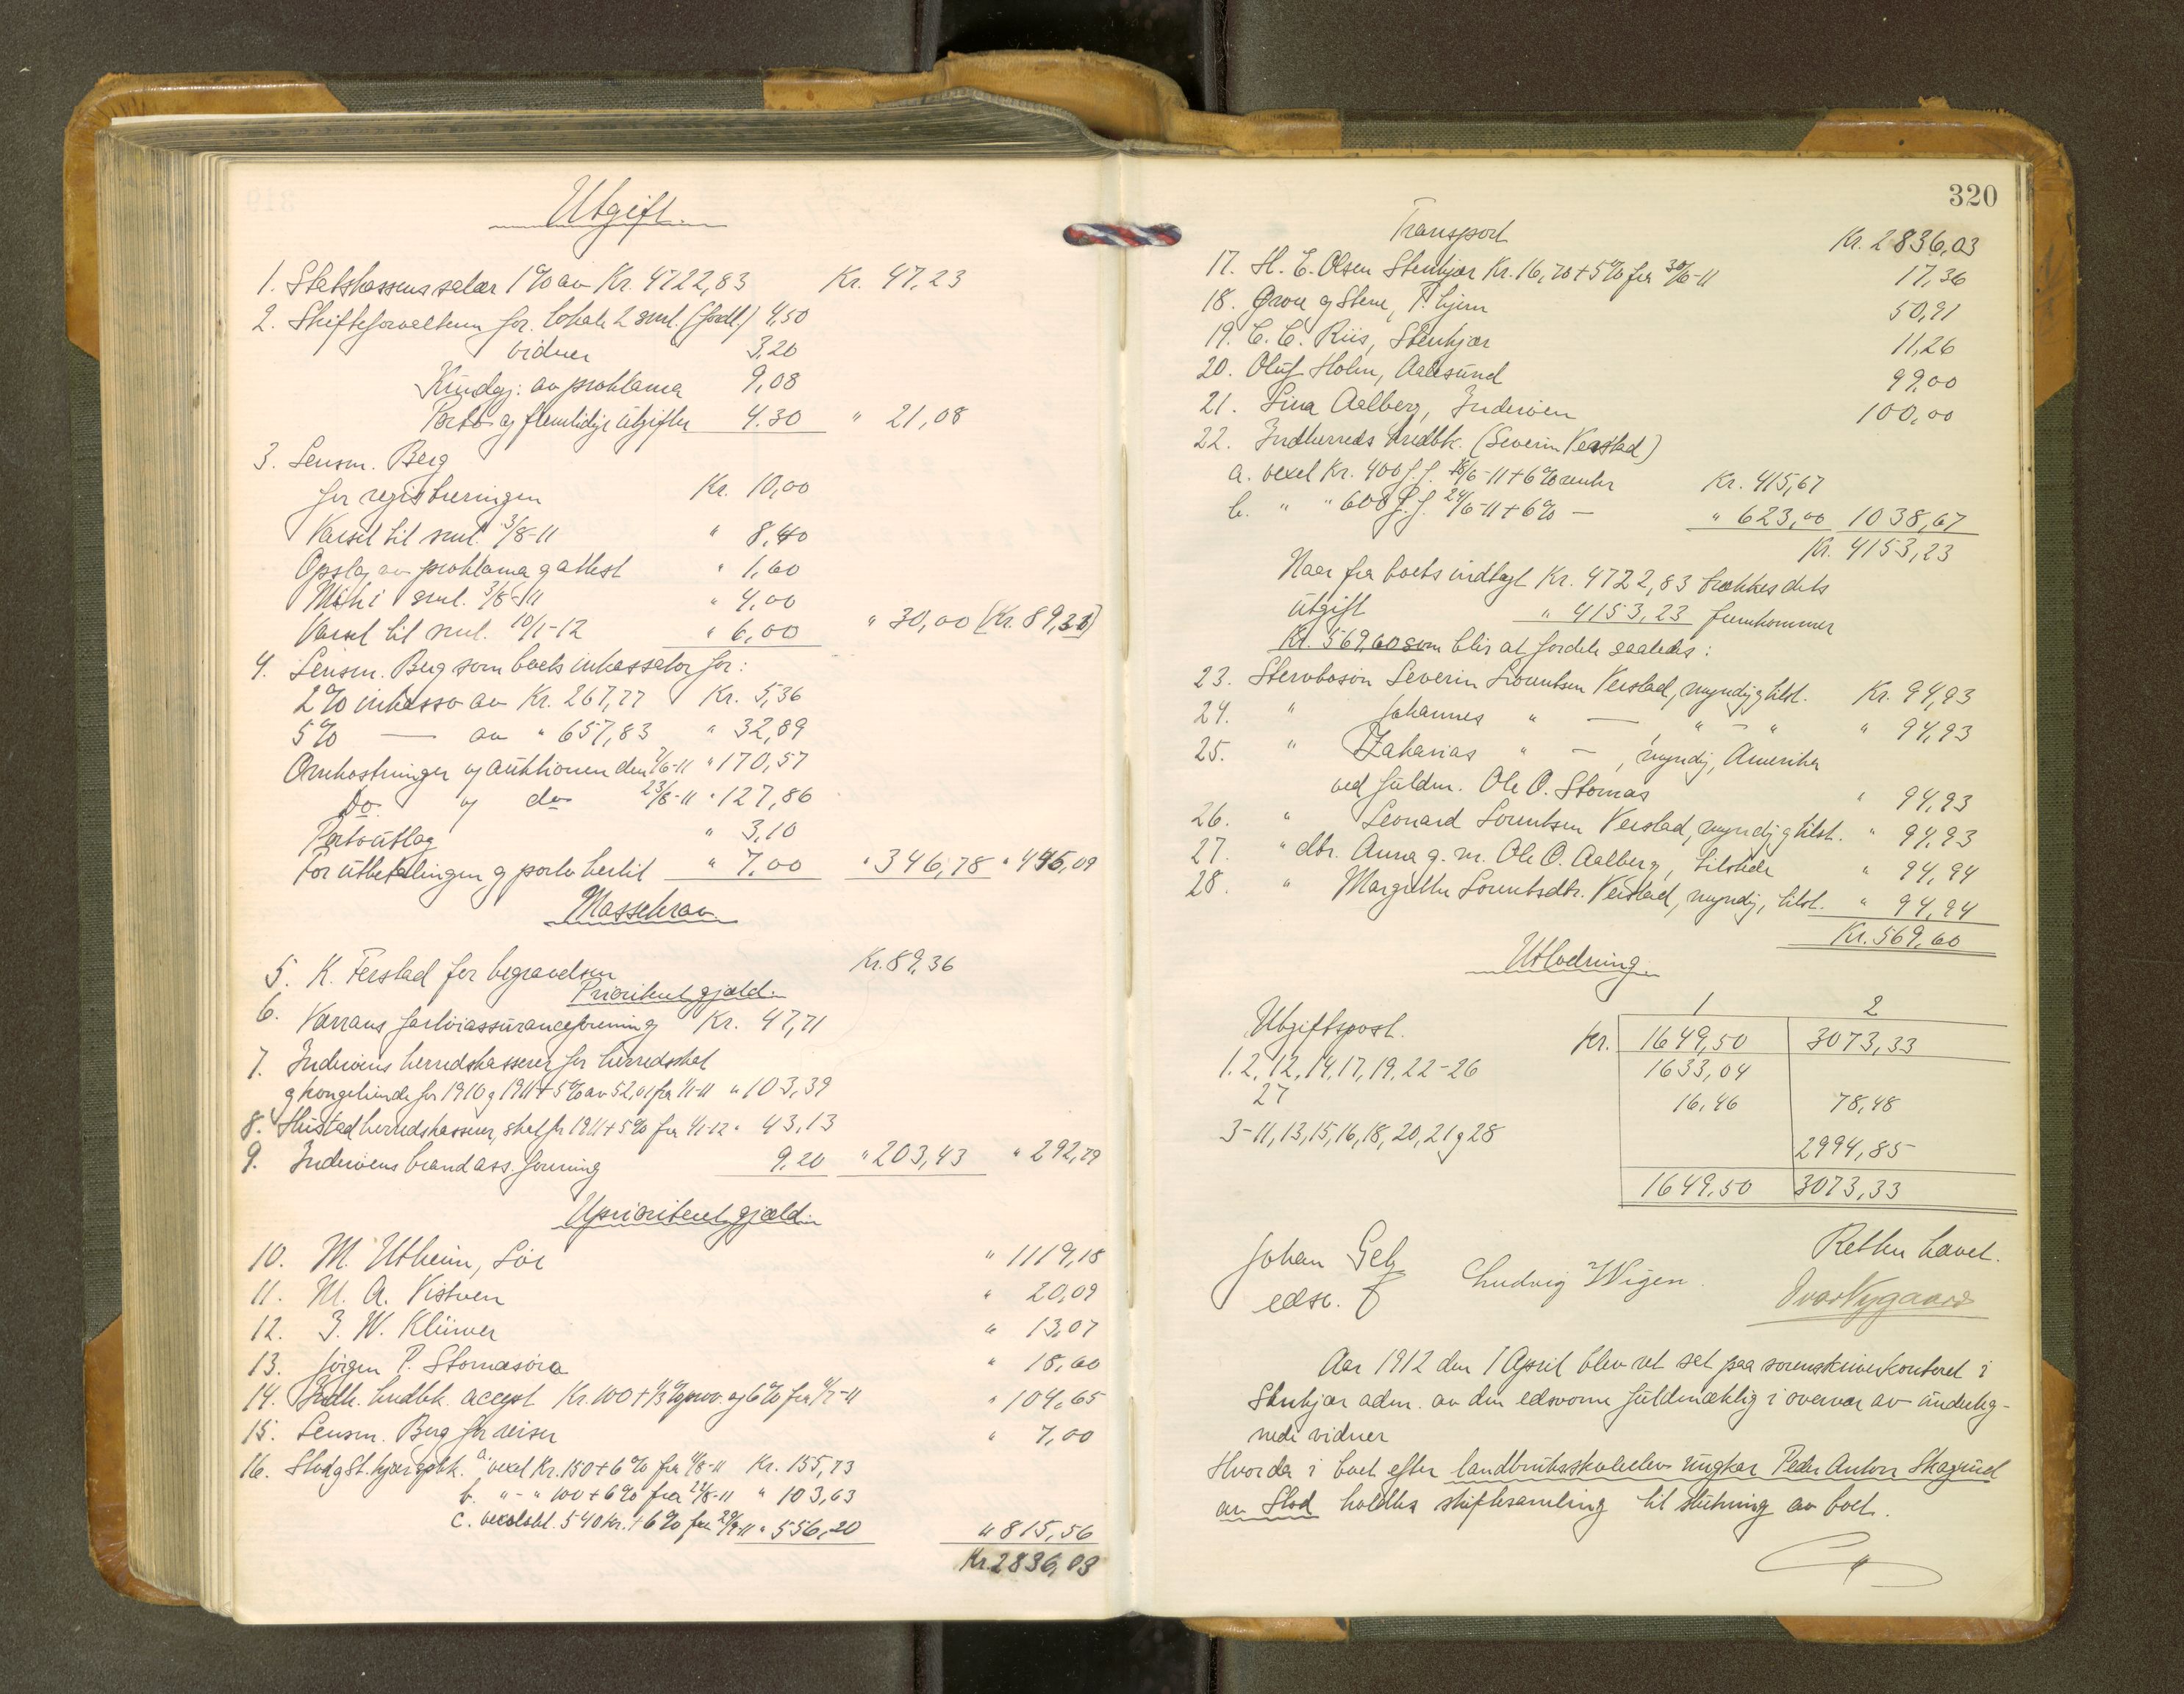 Utgift.
1. Statskassens salær 1% av Kr. 4722,83 Kr. 47,23
2. Skifteforvalteren for lokale 2 sml. (fordl.) 4,50
vidner 3,20
Kundgj: av proklama 9,08
Porto og fremtidige utgifter 4.30 " 21,08
3. Lensm. Berg
for registreringen Kr. 10,00
Varsel til sml. 3/8-11 " 8,40
Opslag av proklama g attest " 1,60
Møte i sml. 3/8-11 " 4,00
Varsel til sml. 10/1-12 " 6,00 " 30,00 (Kr. 89,31)
4. Lensm. Berg som boets inkassator for:
2% inkasso av Kr. 267,77 Kr. 5,36
5% — av " 657,83 " 32,89
Omkostninger v auktionen den 7/6-11 " 170,57
Do. v do 23/8-11 " 127,86
Portoutlag " 3,10
For utbetalingen g porto hertil " 7,00 " 346,78 " 446,09
Massekrav.
5. K. Ferstad for begravelsen Kr. 89,36
Prioritert gjæld.
6. Værrans sjøforsassuranceforening Kr. 47,71
7. Inderøens herredskasserer for herredsskat
g kongetiende for 1910 g 1911 + 5% av 52,01 fra 1/1-11 " 103,39
8. Hustad herredskasserer, skat for 1911 + 5% fra 1/1-12 " 43,13
9. Inderøens brandass. forening 9,20 " 203,43 " 292,79
Uprioritert gjæld.
10. M. Utheim, Sør " 1119,18
11. M. A. Vistven " 20,09
12. J. W. Klüwer " 13,07
13. Jørgen P. Stornæsøra " 18,60
14. Indh. landbk. accept Kr. 100 + 1/3% prov. og 6% fra 4/7-11 " 104,65
15. Lensm. Berg for reiser " 7,00
16. Stod g St.kjær spbk. a. vexel Kr. 150 + 6% fra 11/8-11 Kr. 155,73
b. " - " 100 + 6% fra 22/8-11 " 103,63
c. vexelobl. 540 Kr. + 6% fra 29/9-11 " 556,20 " 815,56
Kr. 2836,03
320
Transport Kr. 2836,03
17. H. E. Olsen Stenkjær Kr. 16,70 + 5% fra 30/6-11 17,36
18. Grove g Stene, T.hjem 50,91
19. C. C. Riis, Stenkjær 11,26
20. Oluf Holm, Aalesund 99,00
21. Lina Aalberg, Inderøen 100,00
22. Indherreds kredbk. (Severin Verstad)
a. vexel Kr. 400 f.f. 18/6-11 + 6% renter Kr. 415,67
b. " " 600 f.f. 24/6-11 + 6% — " 623,00 1038,67
Kr. 4153,23
Naar fra boets indtægt Kr. 4722,83 trækkes dets
utgift " 4153,23 fremkommer
Kr. 569,60 som blir at fordele saaledes:
23. Stervbosøn Severin Lorentsen Verstad, myndig g tilst. Kr. 94,93
24. " Johannes " — " - " " 94,93
25. " Zakarias " — , myndig, Amerika
ved fuldm. Ole O. Stornæs " 94,93
26. " Leonard Lorentsen Verstad, myndig g tilst. " 94,93
27. " dtr. Anna g. m. Ole O. Aalberg, tilstede " 94,94
28. " Margrethe Lorentsdtr. Verstad, myndig, tilst. " 94,94
Kr. 569,60
Utlodning.
Utgiftspost. 1 2
Kr. 1649,50 3073,33
1. 2, 12, 14, 17, 19, 22-26 1633,04
27 16,46 78,48
3-11, 13, 15, 16, 18, 20, 21 g 28 2994,85
1649,50 3073,33
Retten hævet.
Johan Gelz Ludvig Wigen.
edsv. f Ivar Nygaard
Aar 1912 den 1 April blev ret sat paa sorenskriverkontoret i
Stenkjær adm. av den edsvorne fuldmægtig i overvær av underteg-
nede vidner
Hvorda i boet efter landbruksskoleelev ungkar Peder Anton Skagrud
av Stod holdtes skiftesamling til slutning av boet.